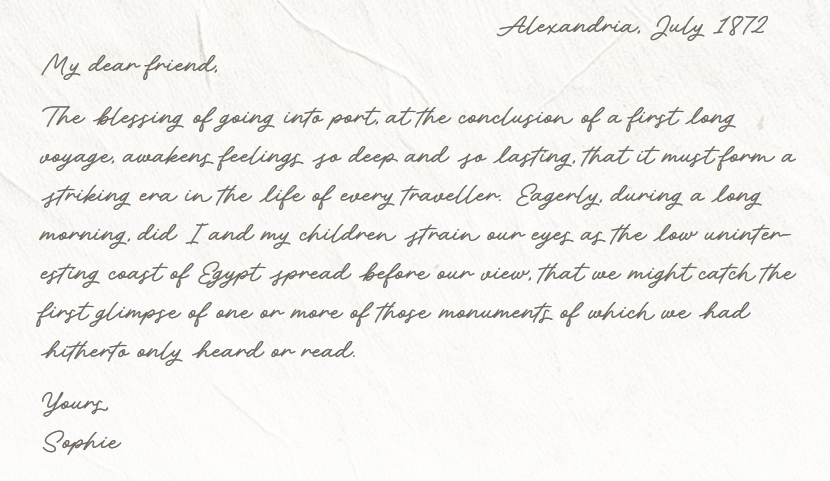 Alexandria, July 1872
My dear friend,
The blessing of going into port, at the conclusion of a first long
voyage, awakens feelings so deep and so lasting, that it must form a
striking era in the life of every traveller. Eagerly, during a long
morning, did I and my children strain our eyes as the low uninter-
esting coast of Egypt spread before our view, that we might catch the
first glimpse of one or more of those monuments of which we had
hitherto only heard or read.
Yours,
Sophie